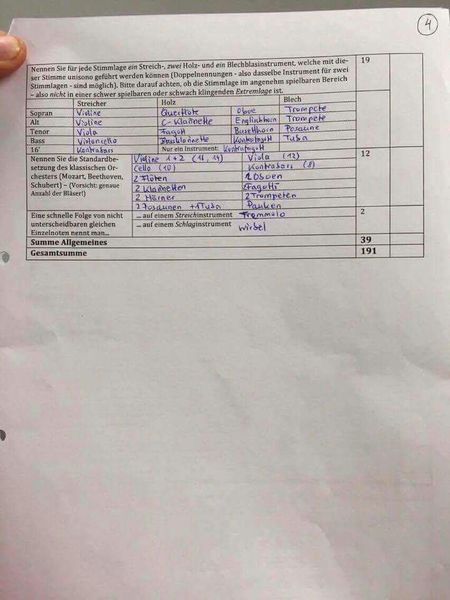 4
Nennen Sie für jede Stimmlage ein Streich-, zwei Holz- und ein Blechblasinstrument, welche mit die-
ser Stimme unisono geführt werden können (Doppelnennungen - also dasselbe Instrument für zwei
Stimmlagen - sind möglich). Bitte darauf achten, ob die Stimmlage im angenehm spielbaren Bereich
– also nicht in einer schwer spielbaren oder schwach klingenden Extremlage ist.
19
Streicher Holz Blech
Sopran Violine Querflöte Oboe Trompete
Alt Violine C-Klarinette Englischhorn Trompete
Tenor Viola Fagott Bassetthorn Posaune
Bass Violoncello Bassklarinette Kontrafagott Tuba
16' Kontrabass Nur ein Instrument: Kontrafagott
Nennen Sie die Standardbe-
setzung des klassischen Or-
chesters (Mozart, Beethoven,
Schubert) – (Vorsicht: genaue
Anzahl der Bläser!)
Violine 1+2 (16, 14) Viola (12)
Cello (10) Kontrabass (8)
2 Flöten 2 Oboen
2 Klarinetten 2 Fagotti
2 Hörner 2 Trompeten
2 Posaunen +1 Tuba Pauken
12
Eine schnelle Folge von nicht
unterscheidbaren gleichen
Einzelnoten nennt man...
...auf einem Streichinstrument Tremmolo
...auf einem Schlaginstrument Wirbel
2
Summe Allgemeines 39
Gesamtsumme 191